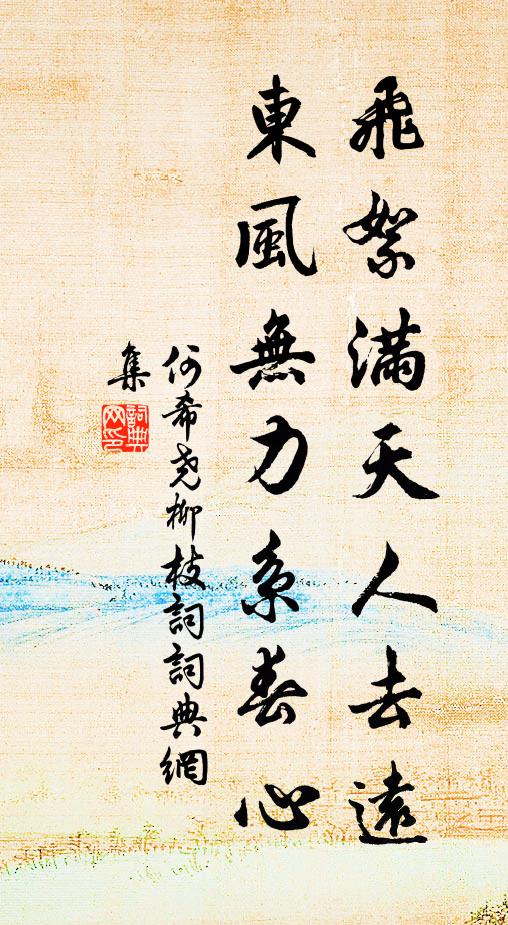 飛絮滿天人去遠
東風無力系春心
何希尧柳枝詞詞典網
集
詞典
网印